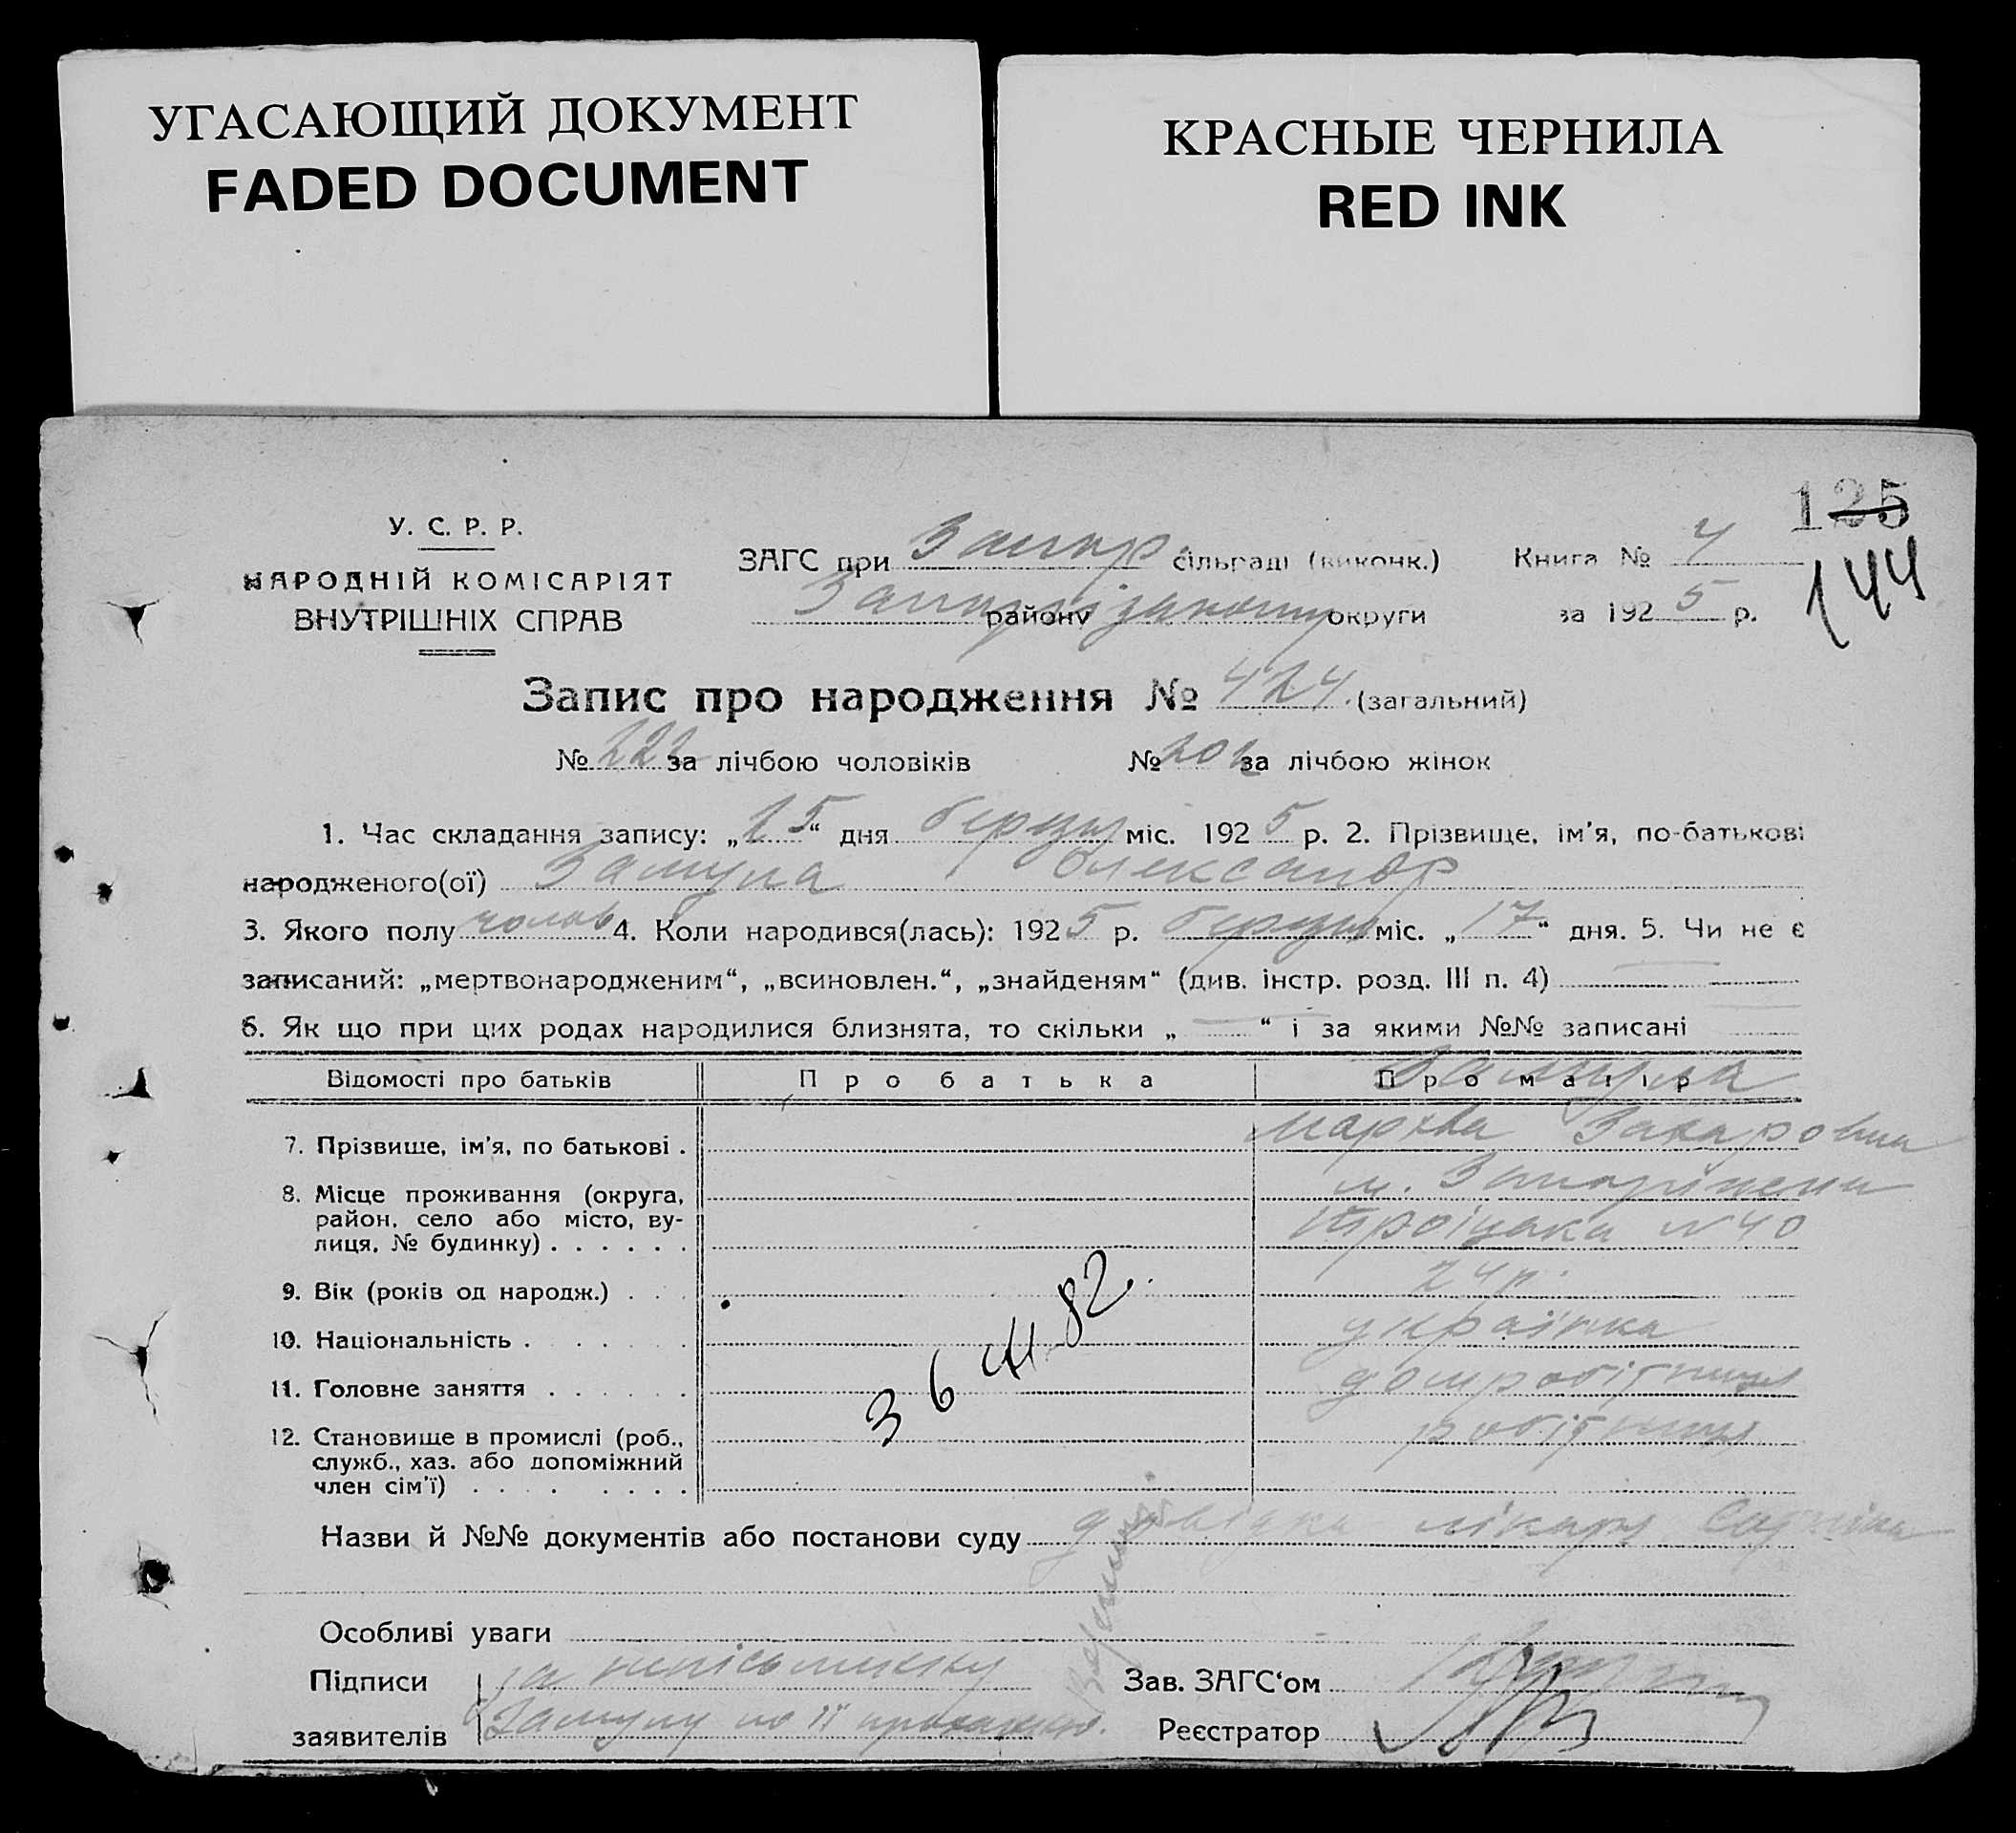 УГАСАЮЩИЙ ДОКУМЕНТ
FADED DOCUMENT
КРАСНЫЕ ЧЕРНИЛА
RED INK
125
144
У. С. Р. Р.
НАРОДНІЙ КОМІСАРІЯТ
ВНУТРІШНІХ СПРАВ
ЗАГС при Запор сільраді (виконк.) Книга № 4
району округи за 1925 р.
Запис про народження № 424 (загальний)
№ 222 за лічбою чоловіків № 202 за лічбою жінок
1. Час складання запису: „25“ дня березня міс. 1925 р. 2. Прізвище, ім'я, по-батькові
народженого(ої) Замула Олександр
3. Якого полу чолов 4. Коли народився(лась): 1925 р. березня міс. „17“ дня. 5. Чи не є
записаний: „мертвонародженим“, „всиновлен.“, „знайденям“ (див. інстр. розд. III п. 4)
6. Як що при цих родах народилися близнята, то скільки „ “ і за якими №№ записані
Відомості про батьків Про батька Про матір
Замула
7. Прізвише, ім'я, по батькові . Мархва Захаровна
8. Місце проживання (округа, м. Запоріжжя
район, село або місто, ву- Троіцька № 40
лиця, № будинку) . . . . . .
9. Вік (років од народж.) . . . 24 р.
10. Національність . . . . . . українка
11. Головне заняття . . . . . . домробітниця
12. Становище в промислі (роб., робітниця
служб., хаз. або допоміжний
член сім'ї) . . . . . . . .
3 6 82.
Назви й №№ документів або постанови суду довідка лікаря
Особливі уваги
Підписи за неписьменну
заявителів Замулу по її проханню.
Зав. ЗАГС‘ом
Реєстратор